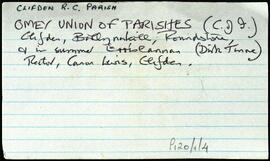 CLIFDEN R.C. PARISH
OMEY UNION OF PARISHES (C. of I.)
Clifden, Ballynakill, Roundstone,
& in summer Errislannan (Dist. Tenure)
Rector, Canon Lewis, Clifden.
P120/1/4